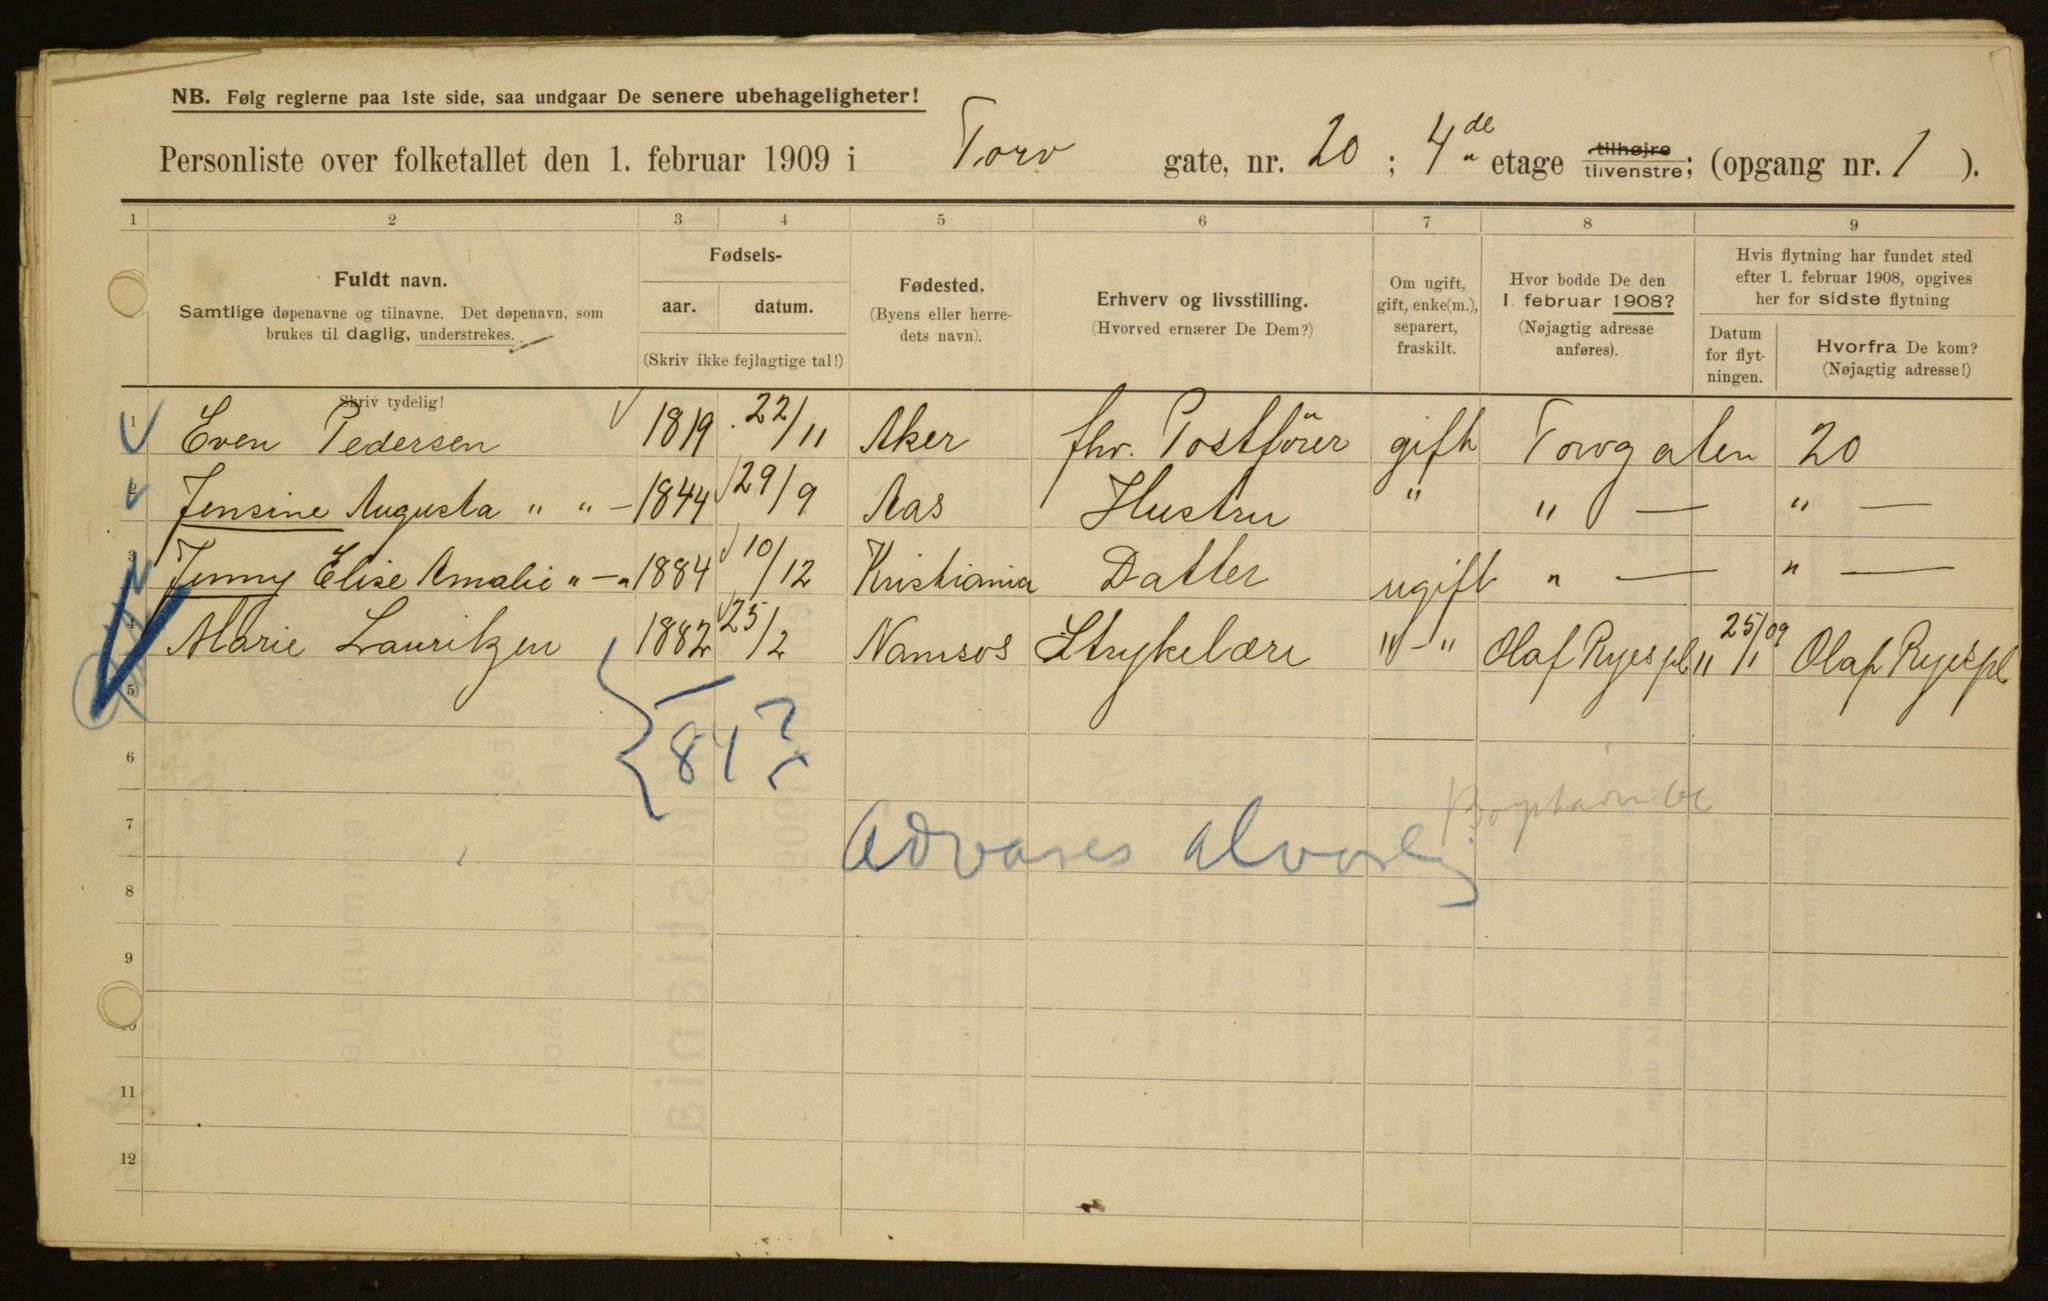 NB. Følg reglerne paa 1ste side, saa undgaar De senere ubehageligheter!
Personliste over folketallet den 1. februar 1909 i Torv gate, nr. 20 ; 4de etage tilhøjre tilvenstre; (opgang nr. 1 ).
1 2 3 4 5 6 7 8 9
Fuldt navn.
Samtlige døpenavne og tilnavne. Det døpenavn, som
brukes til daglig, understrekes.
Fødsels-
aar. datum.
(Skriv ikke fejlagtige tal!)
Fødested.
(Byens eller herre-
dets navn).
Erhverv og livsstilling.
(Hvorved ernærer De Dem?)
Om ugift,
gift, enke(m.),
separert,
fraskilt.
Hvor bodde De den
1 februar 1908?
(Nøjagtig adresse
anføres).
Hvis flytning har fundet sted
efter 1. februar 1908, opgives
her for sidste flytning
Datum
for flyt-
ningen.
Hvorfra De kom?
(Nøjagtig adresse!)
Skriv tydelig!
1 Even Pedersen 1819 22/11 Aker fhv. Postfører gift Torvgaten 20
2 Jensine Augusta " " — 1844 29/9 Aas Hustru " " — " —
3 Jenny Elise Amalie " — " 1884 10/12 Kristiania Datter ugift " — " —
4 Marie Lauritzen 1882 25/2 Namsos Strykelære " — " Olaf Ryespl 11 25/1 09 Olaf Ryespl 11
5
84?
6
7
Advares alvorlig
8
9
10
11
12